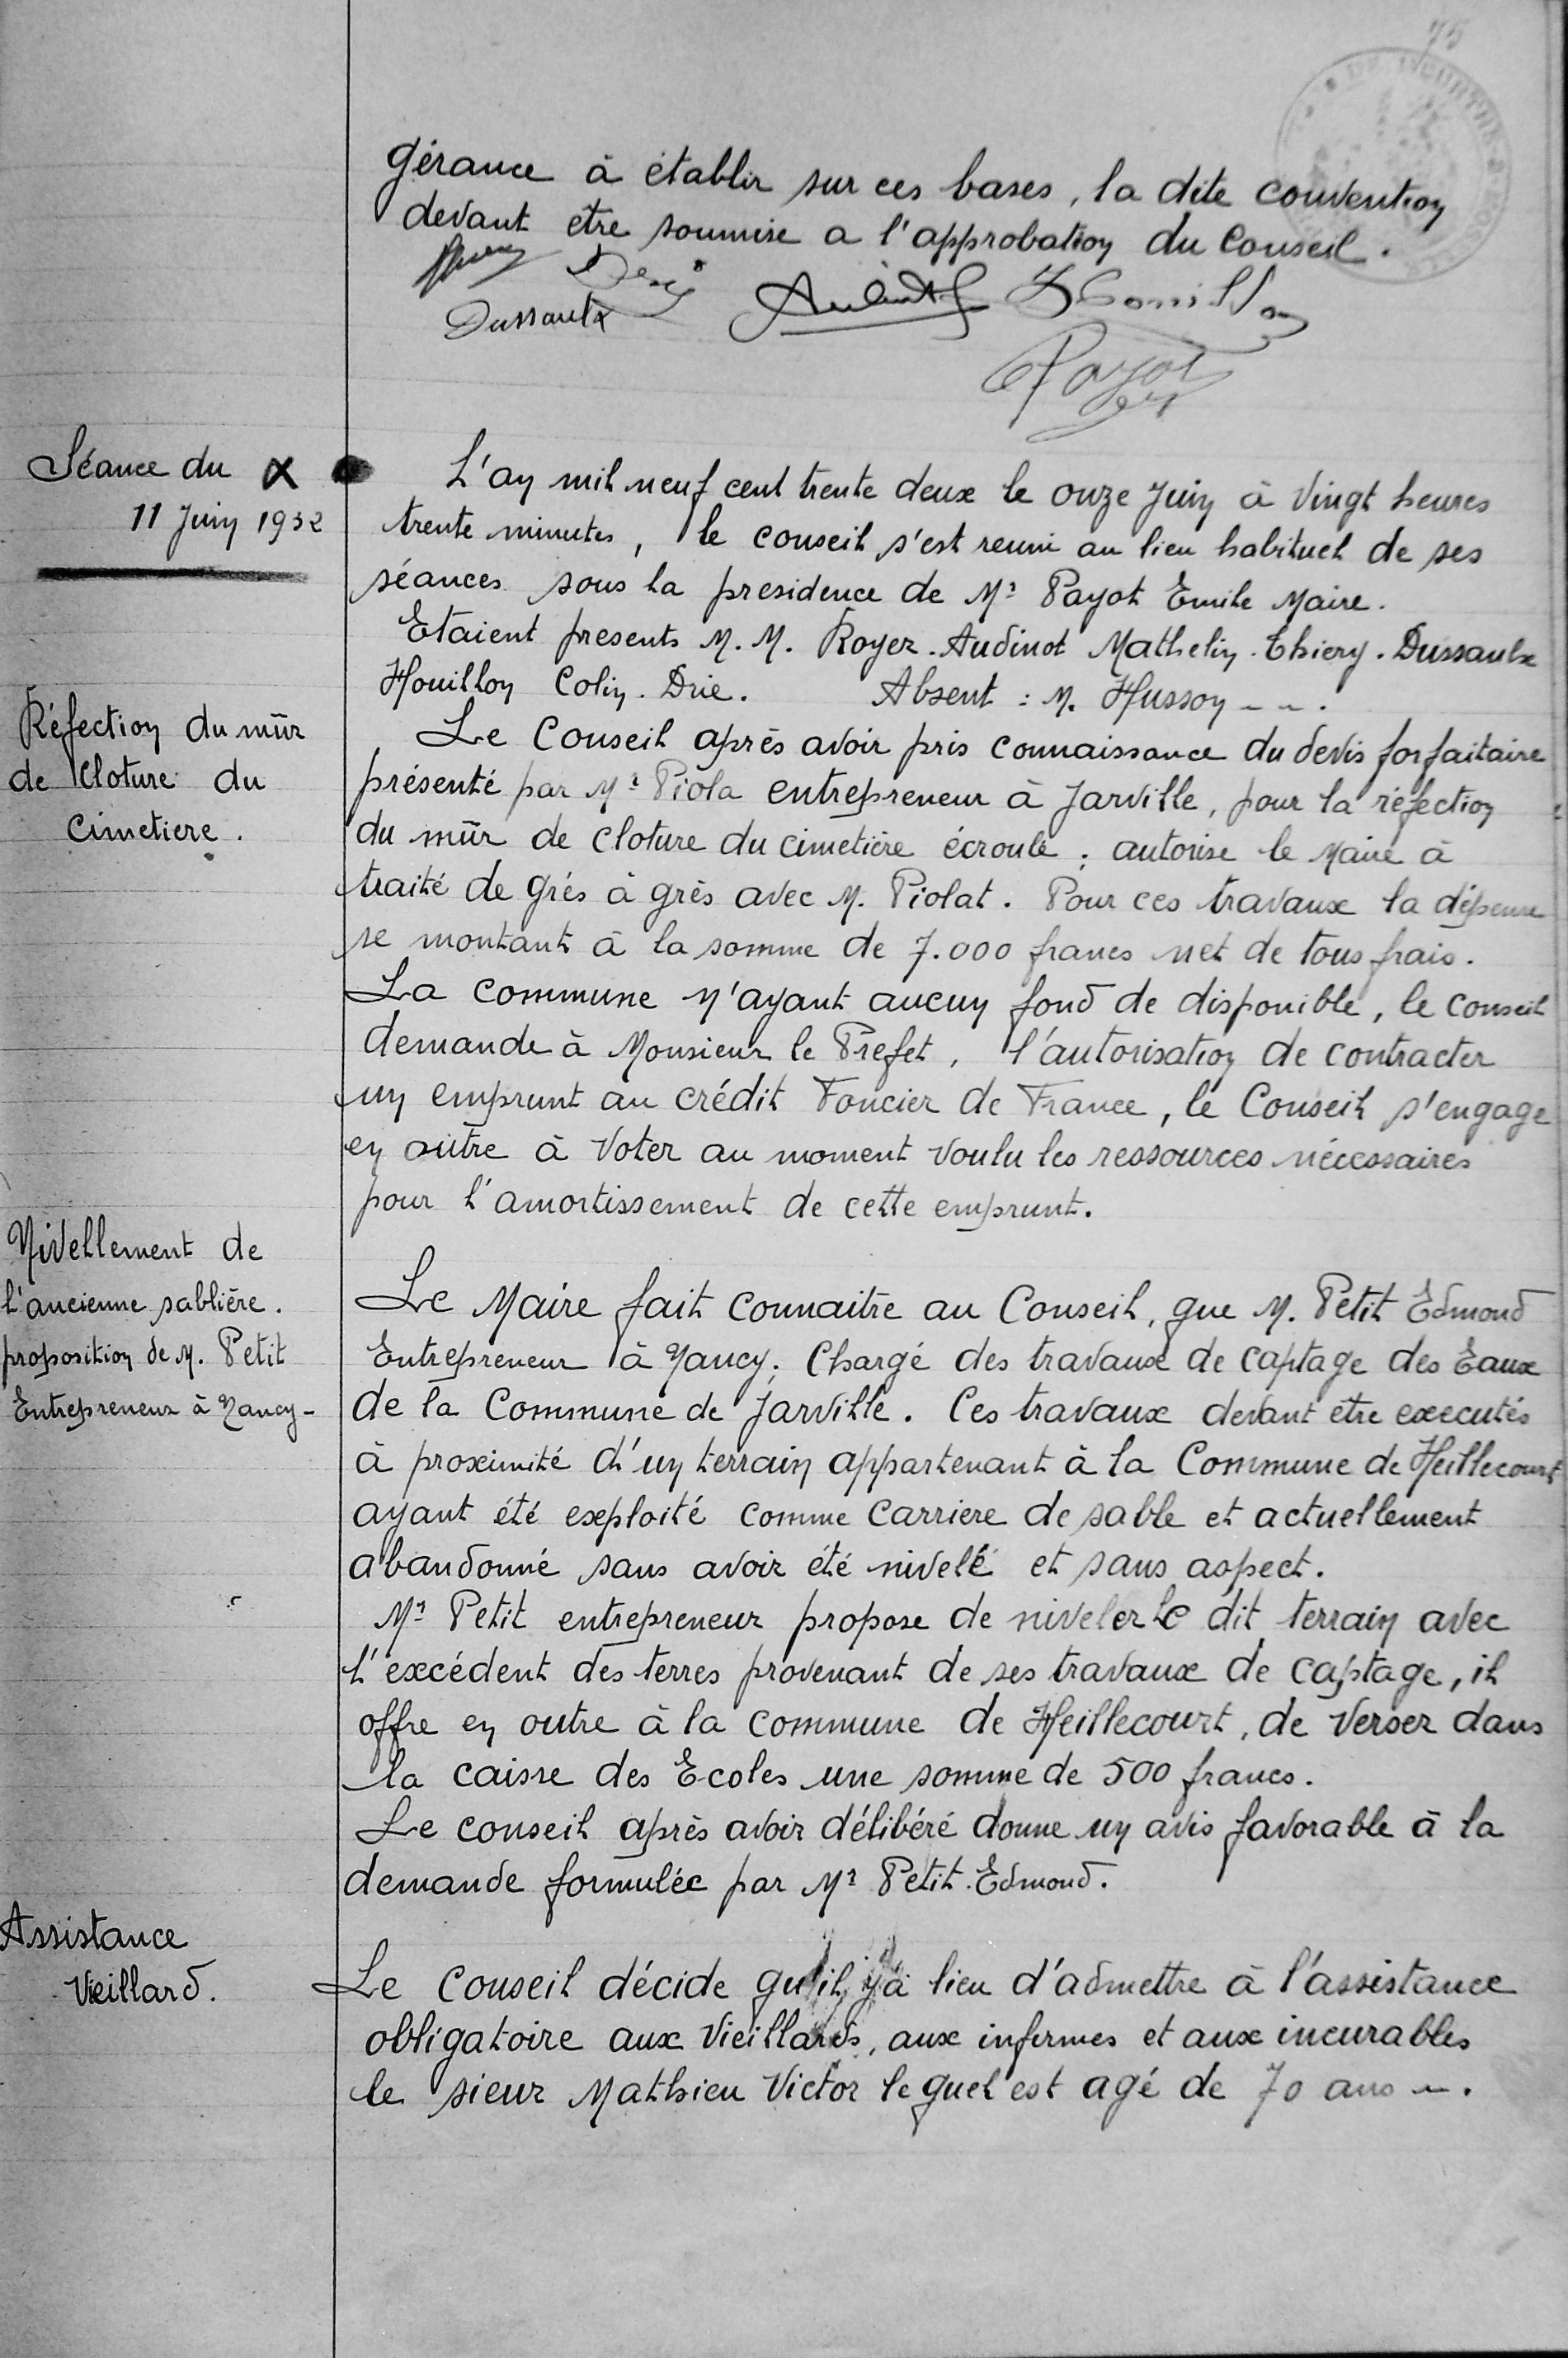 75
gérance à établir sur ces bases, la dite convention
devant etre soumise a l'approbation du Conseil.
Dussaulx
Payot
Séance du
11 Juin 1932
L'an mil neuf cent trente deux le onze Juin à Vingt heures
trente minutes, le conseil s'est reuni au lieu habituel de ses
séances sous la presidence de Mr Payot Emile Maire.
Etaient presents M. M. Royer. Audinot Mathelin. Thiery. Dussaulx
Houillon Colin. Drie. Absent : M. Husson - - .
Réfection du mûr
de Cloture du
Cimetiere.
Le Conseil après avoir pris connaissance du devis forfaitaire
présenté par Mr Piola entrepreneur à Jarville, pour la réfection
du mûr de Cloture du cimetière écroulé ; autorise le Maire à
traité de grés à grès avec M. Piolat. Pour ces travaux la dépense
se montant à la somme de 7.000 francs net de tous frais.
La commune n'ayant aucun fond de disponible, le conseil
demande à Monsieur le Prefet, l'autorisation de contracter
un emprunt au crédit Foncier de France, le Conseil s'engage
en outre à Voter au moment voulu les ressources nécessaires
pour l'amortissement de cette emprunt.
Nivellement de
l'ancienne sablière.
proposition de M. Petit
Entrepreneur à Nancy -
Le Maire fait connaitre au Conseil, que M. Petit Edmond
Entrepreneur à Nancy; Chargé des travaux de captage des Eaux
de la Commune de Jarville. Ces travaux devant etre executés
à proximité d'un terrain appartenant à la Commune de Heillecourt
ayant été exploité comme Carriere de sable et actuellement
abandonné sans avoir été nivelé et sans aspect.
Mr Petit entrepreneur propose de niveler le dit terrain avec
l'excédent des terres provenant de ses travaux de captage, il
offre en outre à la commune de Heillecourt, de Verser dans
la caisse des Ecoles une somme de 500 francs.
Le conseil après avoir délibéré donne un avis favorable à la
demande formulée par Mr Petit Edmond.
Assistance
Vieillard.
Le Conseil décide qu'il y a lieu d'admettre à l'assistance
obligatoire aux Vieillards, aux infermes et aux incurables
le sieur Mathieu Victor lequel est agé de 70 ans -.